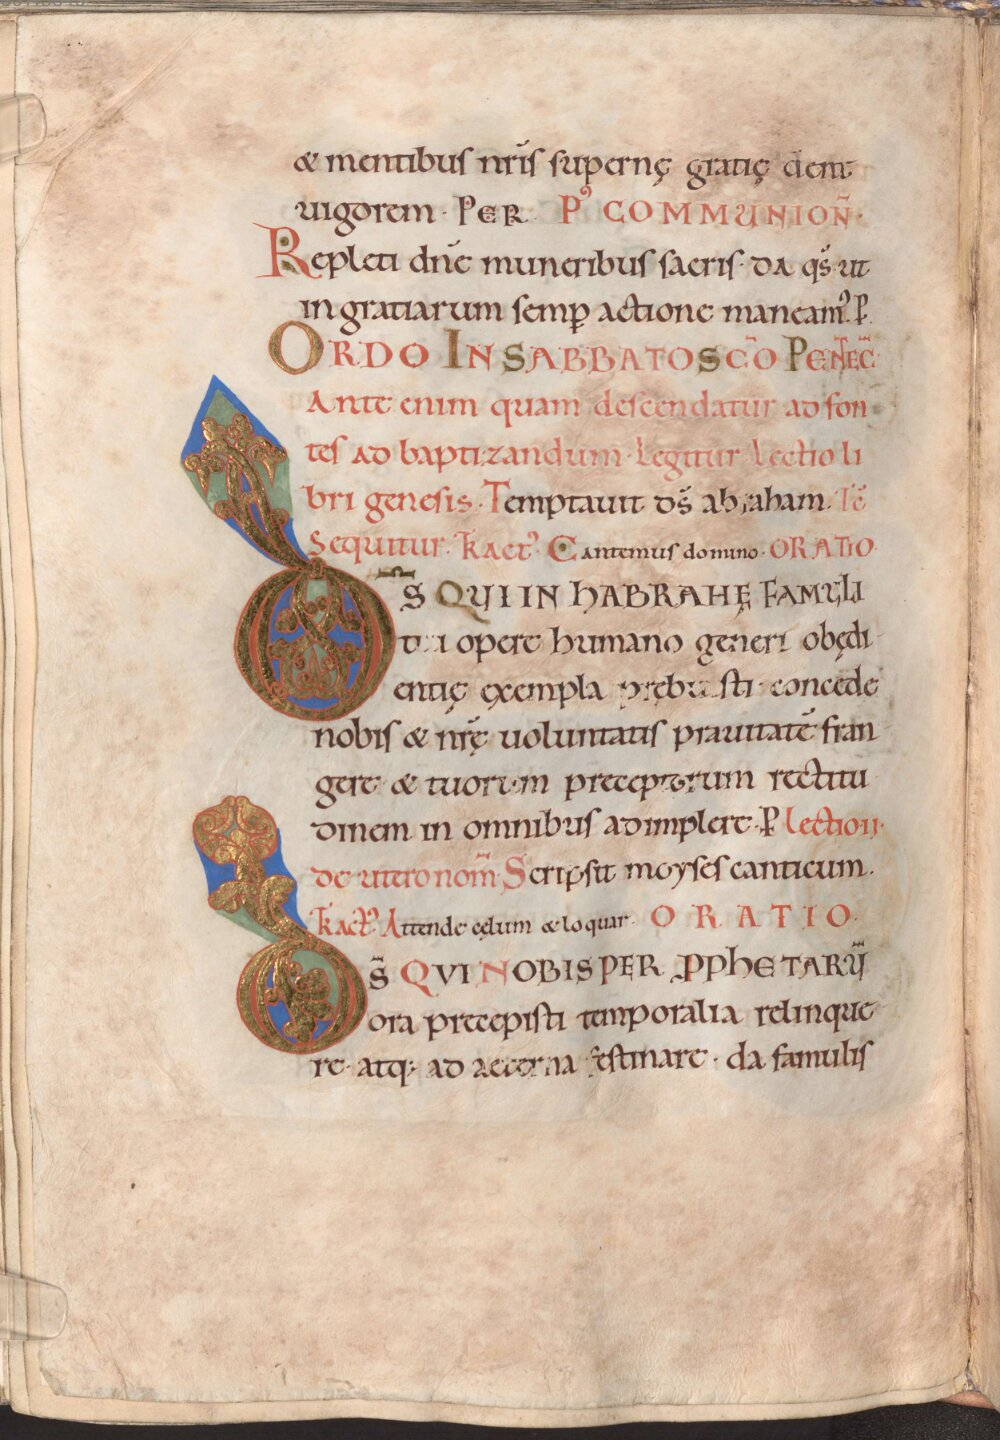 & mentibus nr̄is supernę gratię dent
uigorem · PER · P' COMMUNION̄ ·
Repleti dn̄e muneribus sacris · da qs̄ ut
in gratiarum semꝑ actione maneam'. P̄
ORDO IN SABBATO SC̄O PENTEC̄
Ante enim quam descendatur ad fon
tes ad baptizandum · Legitur Lectio li
bri genesis · Temptauit ds̄ abraham.
Sequitur · Tract' Cantemus domino · ORATIO
D̄S QUI IN HABRAHĘ FAMULI
tui opere humano generi obędi
entię exempla prębuisti · concede
nobis & nr̄ę uoluntatis prauitatē fran
gere & tuorum preceptorum rectitu
dinem in omnibus adimplere · P̄ Lectio II ·
deuteronom̄ Scripsit moyses canticum.
Tract' Attende cęlum & loquar · ORATIO ·
D̄S QVI NOBIS PER PPHETARŪ
ora precepisti temporalia relinque
re · atq; ad aeterna festinare · da famulis